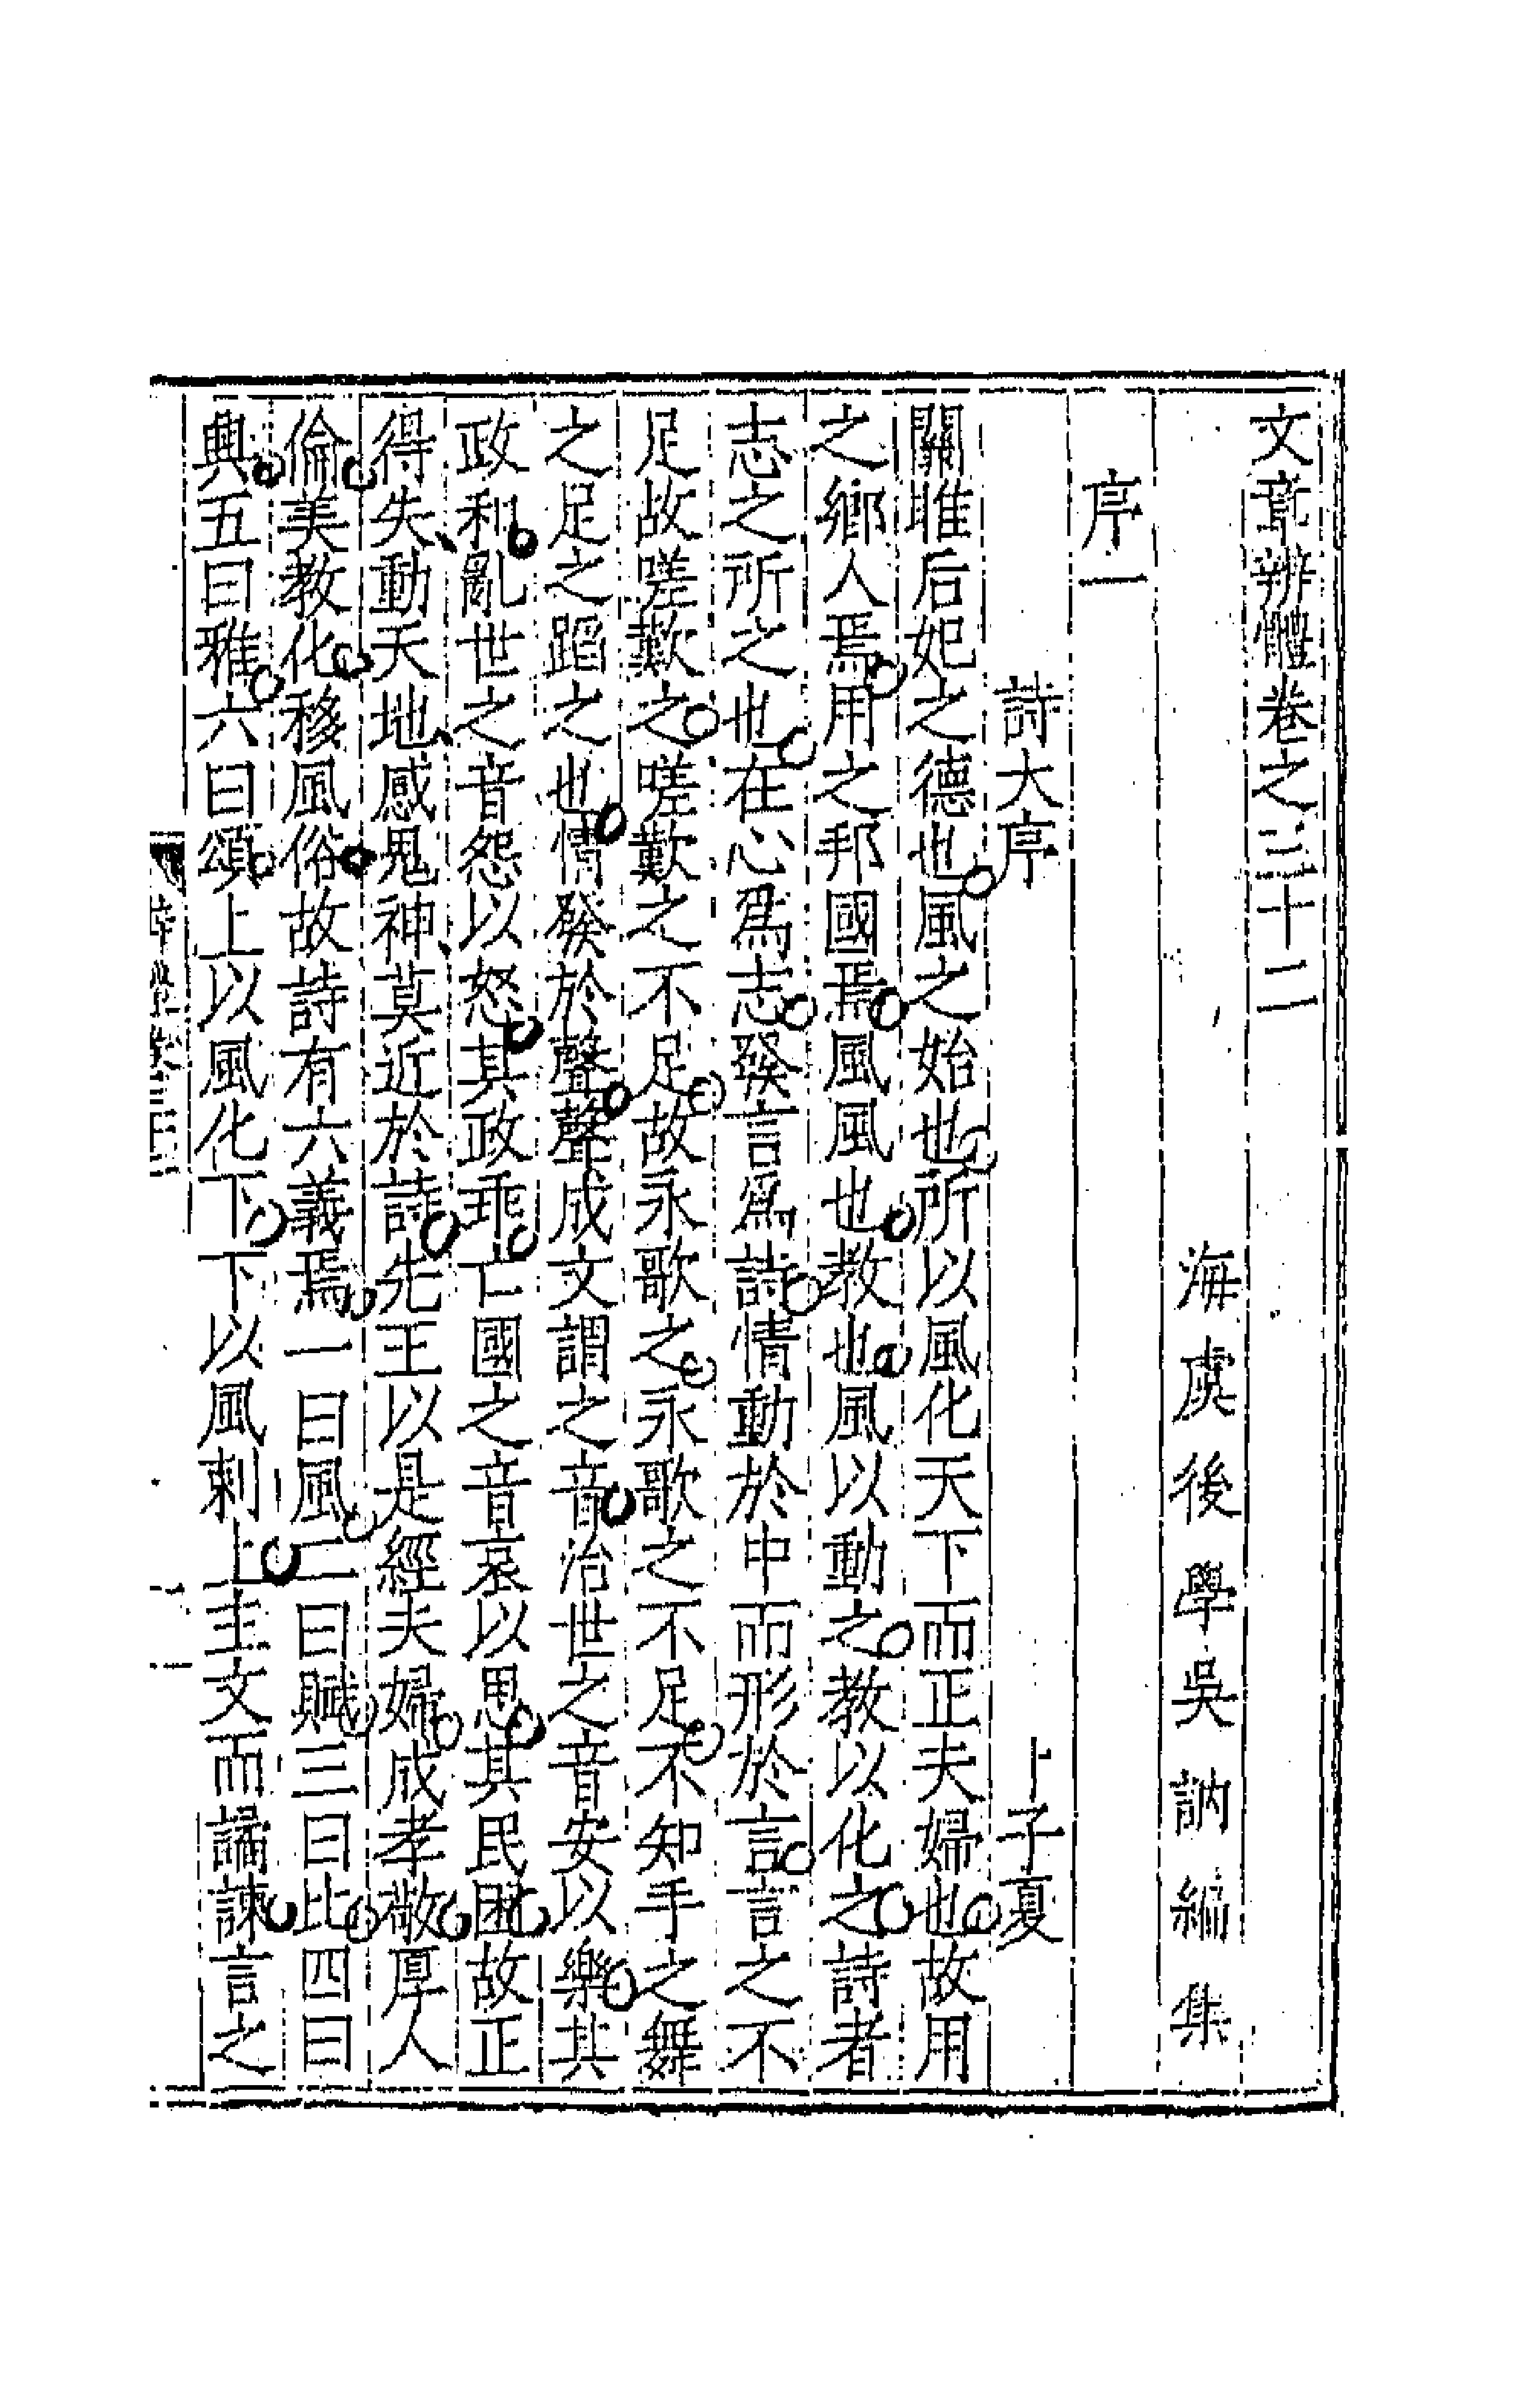 文章辨體卷之三十二
海虞後學吳訥編集
序一
詩大序 卜子夏
關雎后妃之德也風之始也所以風化天下而正夫婦也故用
之鄉人焉用之邦國焉風風也教也風以動之教以化之詩者
志之所之也在心爲志發言爲詩情動於中而形於言言之不
足故嗟歎之嗟歎之不足故永歌之永歌之不足不知手之舞
之足之蹈之也情發於聲聲成文謂之音治世之音安以樂其
政和亂世之音怨以怒其政乖亡國之音哀以思其民困故正
得失動天地感鬼神莫近於詩先王以是經夫婦成孝敬厚人
倫美教化移風俗故詩有六義焉一曰風二曰賦三曰比四曰
興五曰雅六曰頌上以風化下下以風刺上主文而譎諫言之